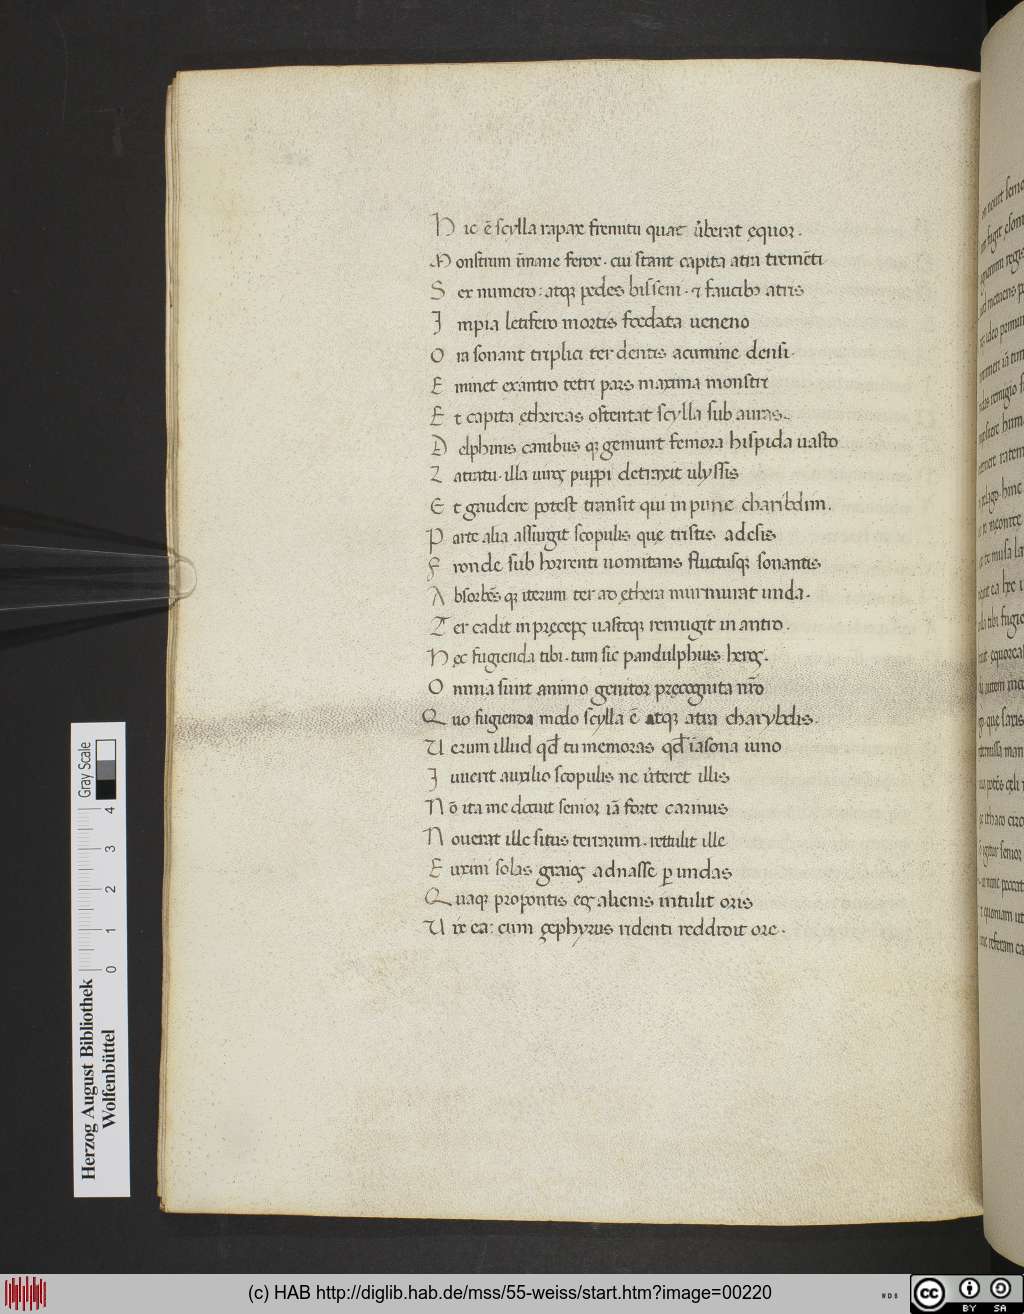 Hic ē scylla rapax fremitu quae ūberat equor.
Monstrum īmane ferox. cui stant capita atra tremēti
Sex numero: atq; pedes bisseni. & faucib; atris
Impia letifero mortis foedata ueneno
Ora sonant triplici ter dentis acumine densi.
Eminet ex antro tetri pars maxima monstri
Et capita ethereas ostentat scylla sub auras.
Delphinis canibus q; gemunt femora hispida uasto
Latratu. illa uirei puppi detraxit ulyssis
Et gaudere potest transit qui inpune charibdim.
Parte alia assurgit scopulis que tristis adesis
Fronde sub horrenti uomitans fluctusq; sonantis
Absorbēs q; iterum ter ad ethera murmurat unda.
Ter cadit in preceps uastoq; remugit in antro.
Nec fugienda tibi. tum sic pandulphius heros.
Omnia sunt animo genitor precognita nr̄o
Quo fugienda modo scylla ē atq; atra charybdis.
Uerum illud qđ tu memoras qđ iasona iuno
Iuuerit auxilio scopulis ne īiteret illis
Nō ita me docuit senior iā forte carinus
Nouerat ille situs terrarum. rettulit ille
Euxini solas graios adnasse p undas
Quaq; propontis eos alienis intulit oris
Uix ea: cum zephyrus ridenti reddidit ore.
Herzog August Bibliothek
Wolfenbüttel
Gray Scale
0 1 2 3 4
(c) HAB http://diglib.hab.de/mss/55-weiss/start.htm?image=00220
WDB
CC BY SA